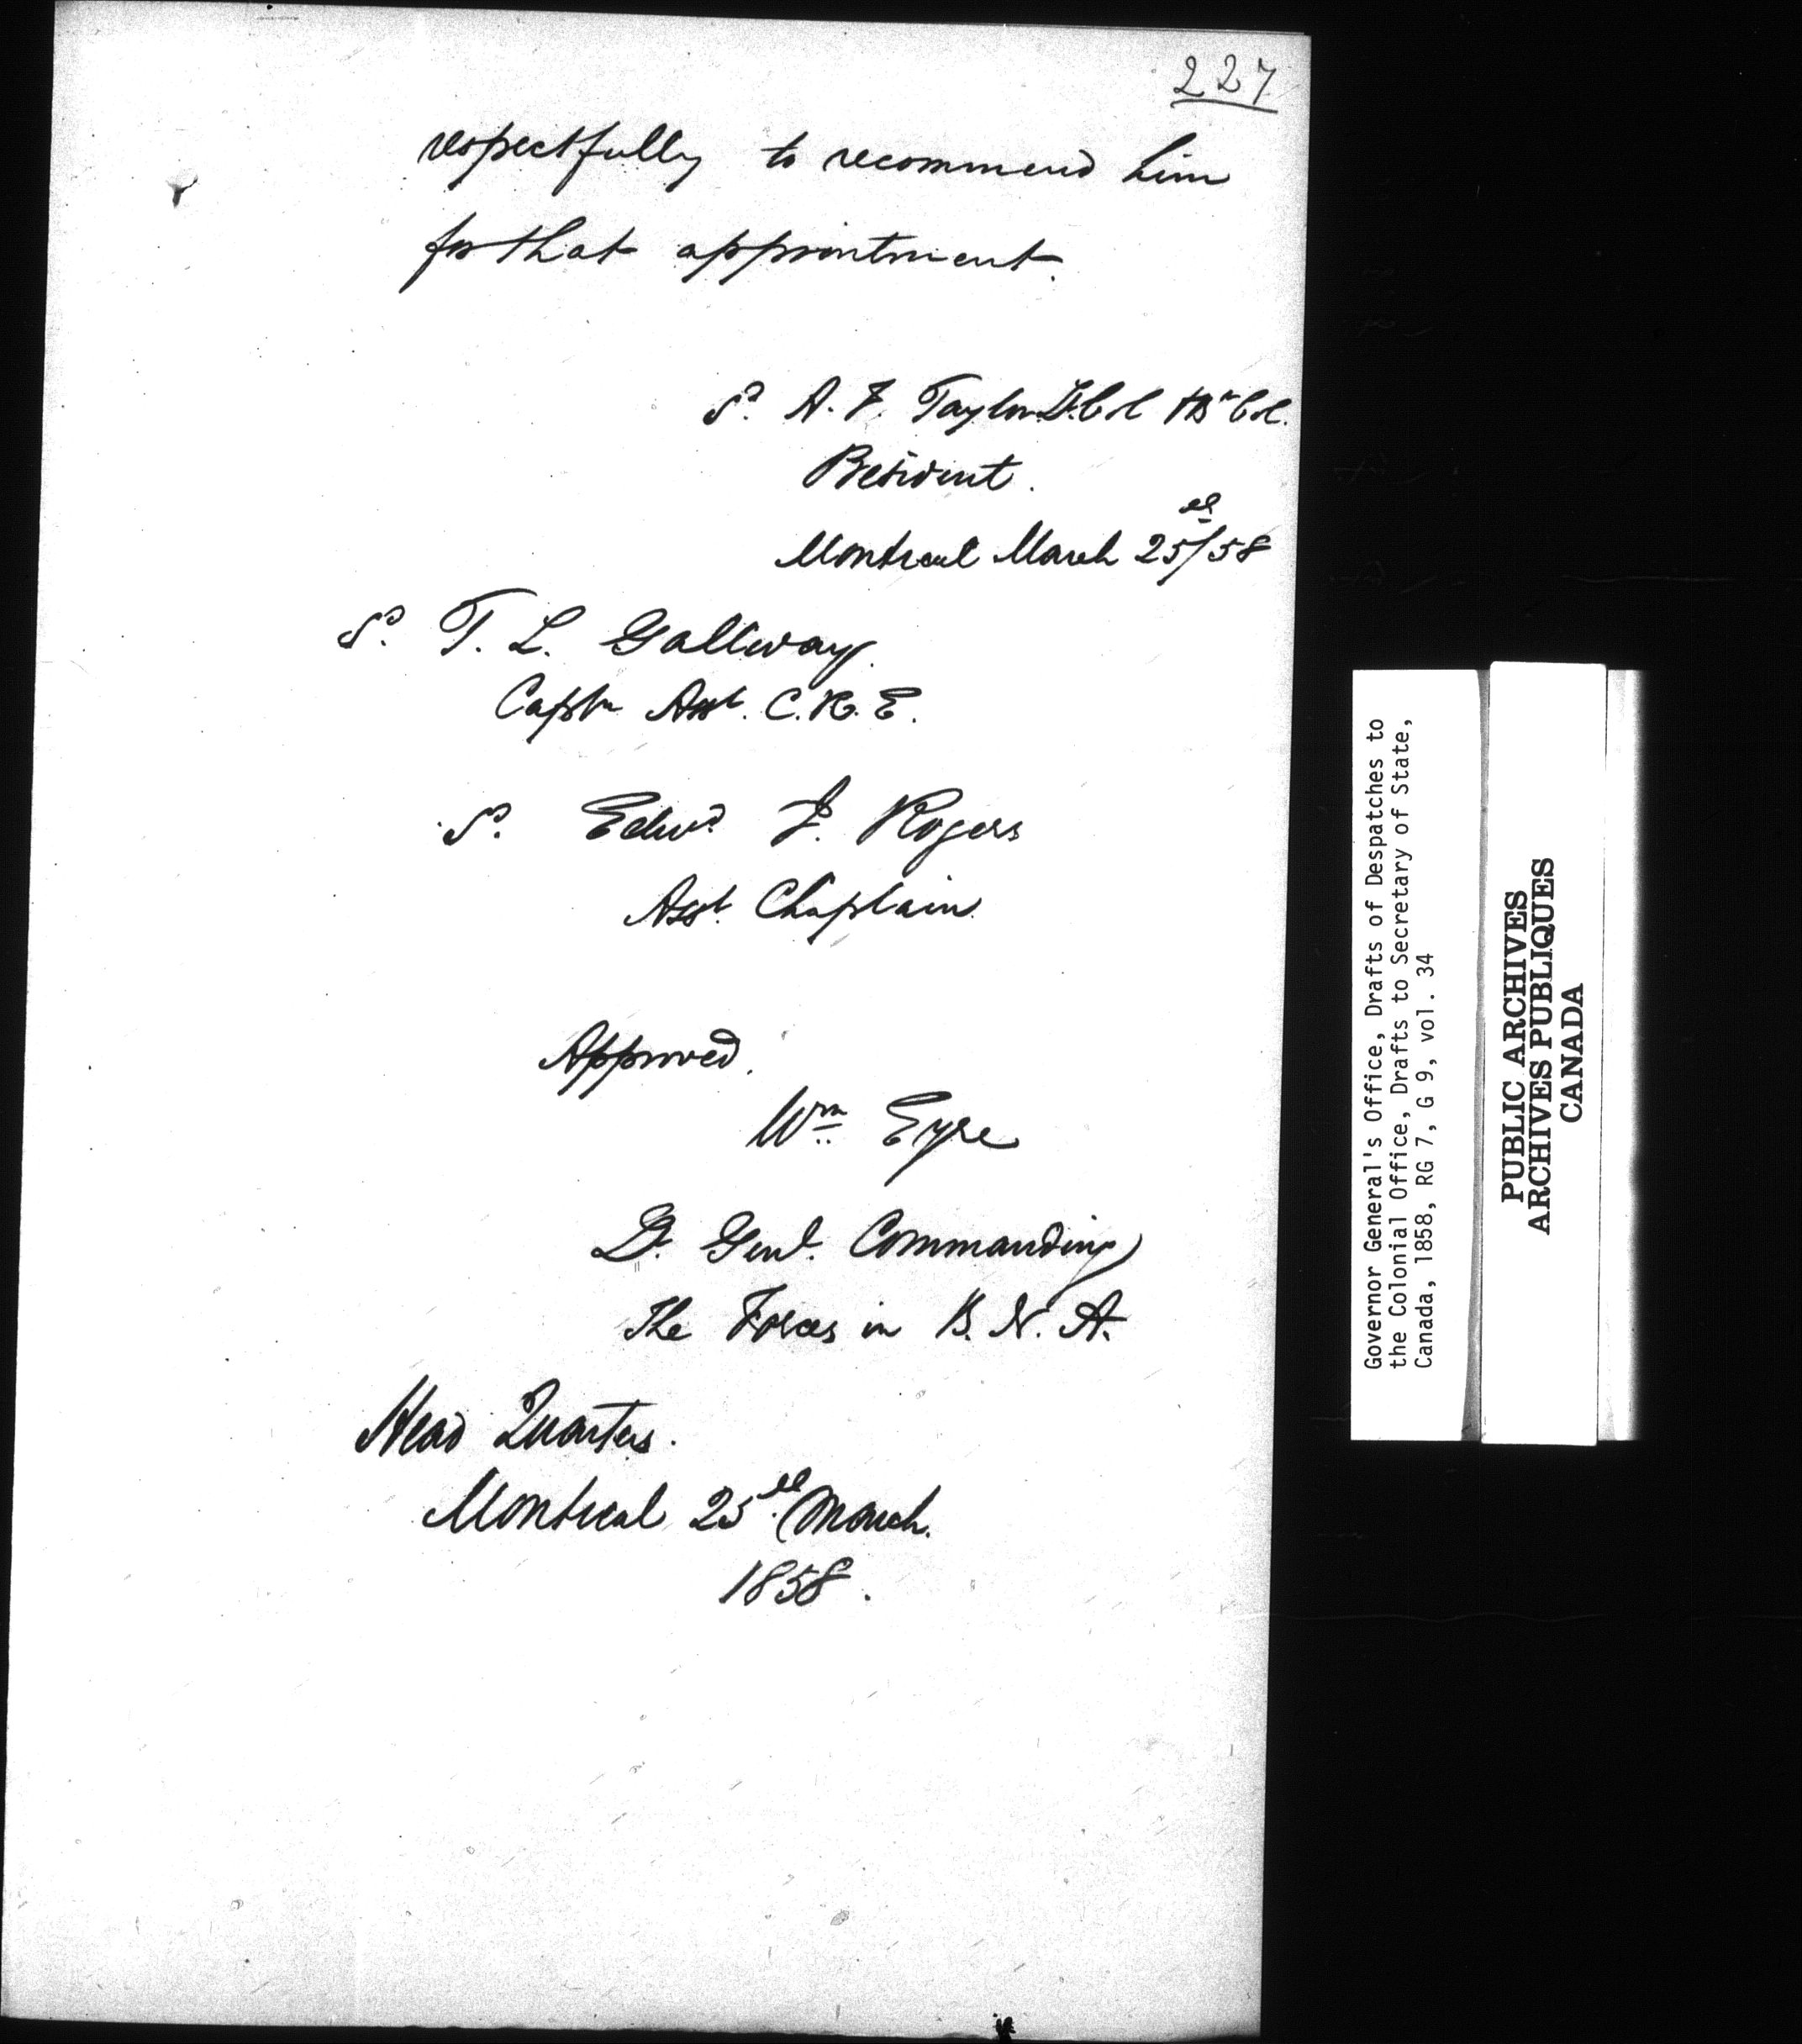 227
respectfully to recommend him
for that appointment.
Sd. A. F. Taylor Lt. Col Br Col.
President.
Montreal March 25th/58
Sd. T. L. Gallwey
Captn Asst. C.R.E.
Sd. Edwd J. Rogers
Asst. Chaplain
Approved.
Wm Eyre
Lt. Genl. Commanding
The Forces in B. N. A.
Head Quarters.
Montreal 25th March.
1858.
Governor General's Office, Drafts of Despatches to
the Colonial Office, Drafts to Secretary of State,
Canada, 1858, RG 7, G 9, vol. 34
PUBLIC ARCHIVES
ARCHIVES PUBLIQUES
CANADA